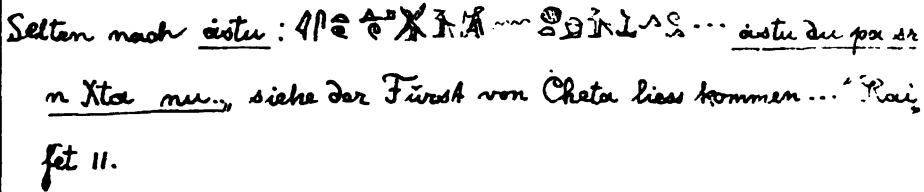 Selten nach àstu: ... àstu du pa sr
n Xta nu.., siehe der Fürst von Cheta liess kommen..." Rai,
fet II.